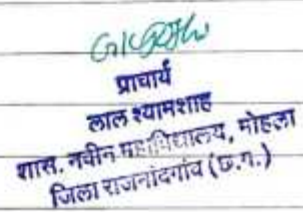 प्राचार्य
लाल श्यामशाह
शास. नवीन महाविद्यालय, मोहला
जिला राजनांदगांव (छ.ग.)